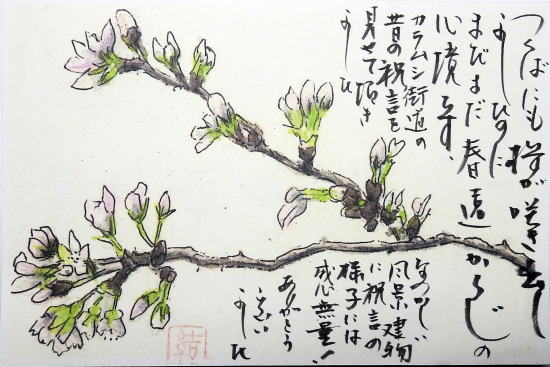 つくばにも桜が咲き出し
ましたのに
まだまだ春遠からじの
心境です、
カラムシ街道の
昔の祝言を
見せて頂き
ました
なつかしい
風景建物
に祝言の
様子には
感無量!
ありがとう
ました